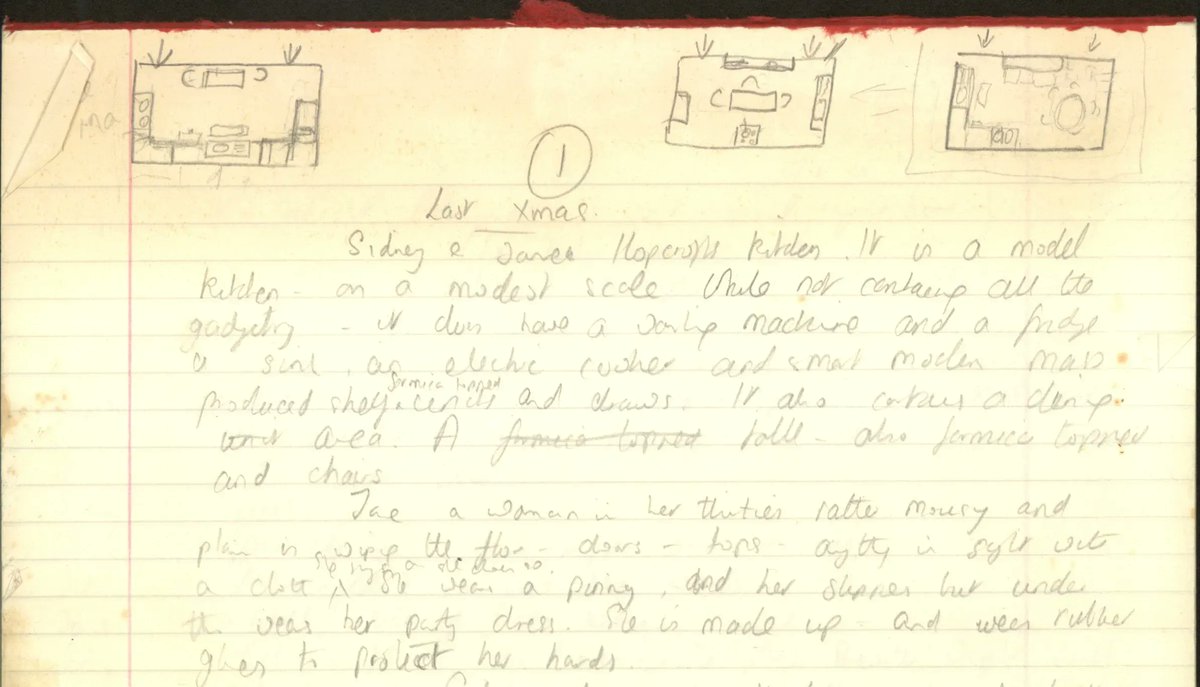 1
Last Xmas.
Sidney & Jane Hopcroft's kitchen. It is a model
kitchen - on a modest scale While not containing all the
gadgetry - it does have a washing machine and a fridge
a sink, an electric cooker and smart modern mass
formica topped
produced shelf units and draws. It also contains a dining
unit area. A formica topped table - also formica topped
and chairs
Jane a woman in her thirties rather mousy and
plain is wiping the floor - doors - tops - anything in sight with
she sings as she does so.
a cloth. She wears a pinny, and her slippers but under
this wears her party dress. She is made up - and wears rubber
gloves to protect her hands.